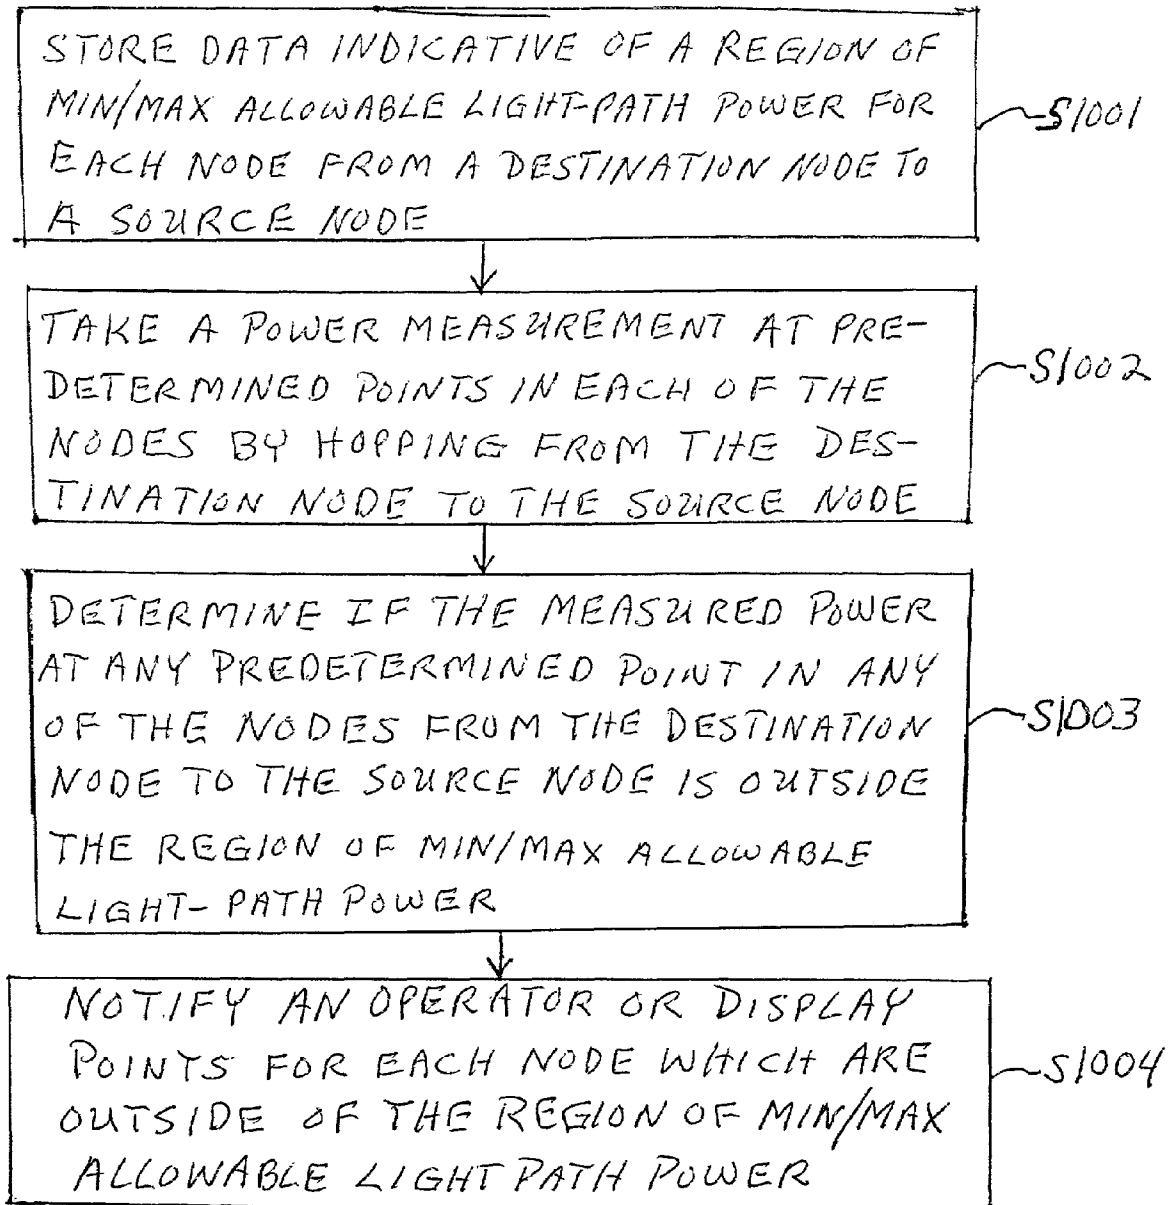 STORE DATA INDICATIVE OF A REGION OF
MIN/MAX ALLOWABLE LIGHT-PATH POWER FOR
EACH NODE FROM A DESTINATION NODE TO
A SOURCE NODE
S1001
TAKE A POWER MEASUREMENT AT PRE-
DETERMINED POINTS IN EACH OF THE
NODES BY HOPPING FROM THE DES-
TINATION NODE TO THE SOURCE NODE
S1002
DETERMINE IF THE MEASURED POWER
AT ANY PREDETERMINED POINT IN ANY
OF THE NODES FROM THE DESTINATION
NODE TO THE SOURCE NODE IS OUTSIDE
THE REGION OF MIN/MAX ALLOWABLE
LIGHT-PATH POWER
S1003
NOTIFY AN OPERATOR OR DISPLAY
POINTS FOR EACH NODE WHICH ARE
OUTSIDE OF THE REGION OF MIN/MAX
ALLOWABLE LIGHT PATH POWER
S1004